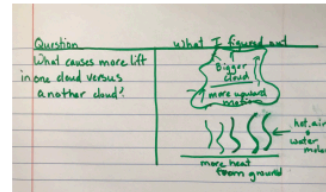 Question
What causes more lift
in one cloud versus
another cloud?
What I figured out
Bigger
cloud
more upward
hot air
water
more heat
from ground